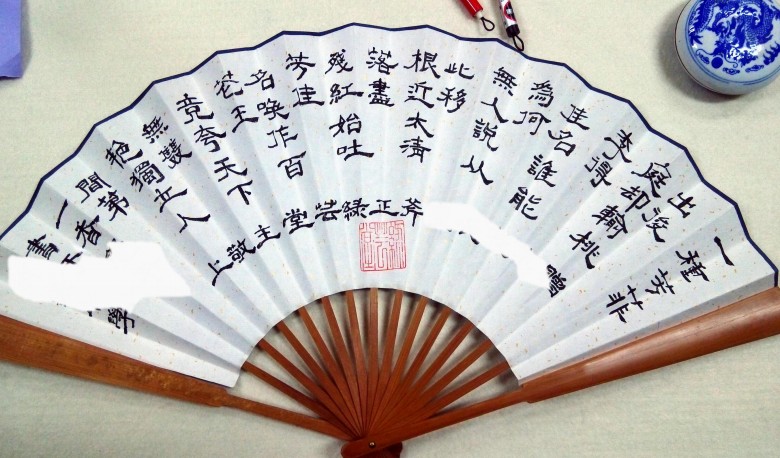 一種芳菲
出後
庭却輸桃
李得
佳名誰能
為何
無人說从
此移
根近太清
落盡
殘紅始吐
芳佳
名喚作百
花王
竞夸天下
無雙
艳獨立人
間第
一香
書
學
斧正
綠芸堂主敬上